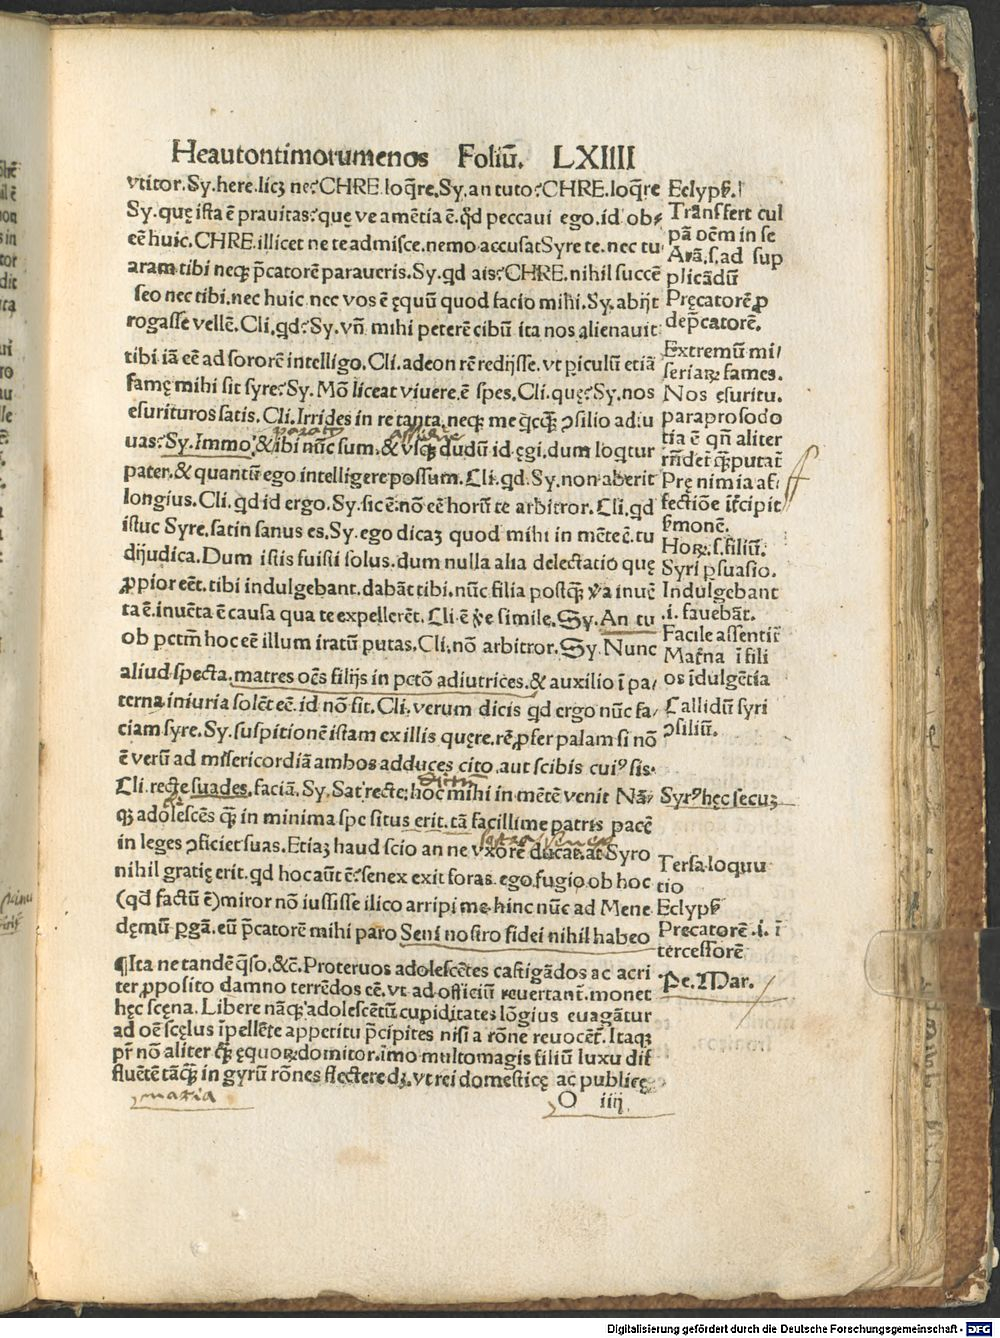 Heautontimorumenos Foliū. LXIIII
vtitor. Sy. here. licʒ ne? CHRE. loq̄re. Sy. an tuto? CHRE. loq̄re
Sy. quę ista ē prauitas? quę ve amētia ē. qd peccaui ego. id ob⸗
eē huic. CHRE. illicet ne te admisce. nemo accusat Syre te. nec tu
aram tibi neqʒ p̄catorē paraueris. Sy. qd ais? CHRE. nihil succē
seo nec tibi. nec huic. nec vos ē ęquū quod facio mihi. Sy. abijt
rogasse vellē. Cli. qd? Sy. vn̄ mihi peterē cibū ita nos alienauit
tibi iā eē ad sororē intelligo. Cli. adeon rē redijsse. vt piculū etiā
famę mihi sit syre? Sy. Mō liceat viuere. ē spes. Cli. quę? Sy. nos
esurituros satis. Cli. Irrides in re tanta. neqʒ me qcqʒ ↄsilio adiu
uas? Sy. Immo, & ibi nūc sum. & vsqʒ dudū id ęgi. dum loqtur
pater. & quantū ego intelligere possum. Cli. qd. Sy. non aberit
longius. Cli. qd id ergo. Sy. sic ē. nō eē horū te arbitror. Cli. qd
istuc Syre. satin sanus es. Sy. ego dicaʒ quod mihi in mēte ē. tu
dijudica. Dum istis fuisti solus. dum nulla alia delectatio quę
ꝓpior eēt. tibi indulgebant. dabāt tibi. nūc filia postqʒ v̄a inuē
ta ē. inuēta ē causa qua te expellerēt. Cli ē v̄e simile. Sy. An tu
ob pctm̄ hoc eē illum iratū putas. Cli. nō arbitror. Sy. Nunc
aliud specta. matres oēs filijs in pctō adiutrices. & auxilio ī pa/
terna iniuria solēt eē. id nō fit. Cli. verum dicis qd ergo nūc fa/
ciam syre. Sy. suspitionē istam ex illis quęre. rē ꝓfer palam si nō
ē verū ad misericordiā ambos adduces cito. aut scibis cuiꝰ sis.
Cli. recte suades. faciā. Sy. Sat recte: hoc mihi in mētē venit Nā/
qʒ adolescēs qʒ in minima spe situs erit. tā facillime patris pacē
in leges ↄficiet suas. Etiaʒ haud scio an ne vxorē ducat. at Syro
nihil gratię erit. qd hoc aūt ē? senex exit foras. ego fugio ob hoc
(qd factū ē) miror nō iussisse ilico arripi me. hinc nūc ad Mene
dęmū pgā. eū p̄catorē mihi paro Seni nostro fidei nihil habeo
¶Ita ne tandē q̄so, &c̄. Proteruos adolescētes castigādos ac acri
ter ꝓposito damno terrēdos eē. vt ad officiū reuertant̄. monet
hęc scęna. Libere nāqʒ adolescētū cupiditates lōgius euagātur
ad oē scęlus īpellēte appetitu p̄cipites nisi a rōne reuocēt̄. Itaqʒ
pr̄ nō aliter qʒ ęquoꝝ domitor. imo multomagis filiū luxu dif
fluētē tāqʒ in gyrū rōnes flectere dʒ. vt rei domesticę ac publicę
O iiij
maria
Eclyps̄.
Transfert cul
pā oēm in se
Arā. s. ad sup
plicādū
Pręcatorē ꝓ
dep̄catorē.
Extremū mi/
seriaꝝ fames.
Nos esuritu.
paraprosodo
tia ē qn̄ aliter
rn̄det qʒ putat̄
Prę nimia af/
fectiōe īt̄cipit
s̄monē.
Hoꝝ. s. filiū.
Syri psuasio.
Indulgebant
.i. fauebāt.
Facile assentit̄
Mat̄na ī fili
os īdulgētia
Callidū syri
ↄsiliū.
Syrꝰ hęc secuʒ
Tersa loquu
tio
Eclyps̄
Precatorē .i. ī
tercessorē
Pe. Mar.
Digitalisierung gefördert durch die Deutsche Forschungsgemeinschaft - DFG